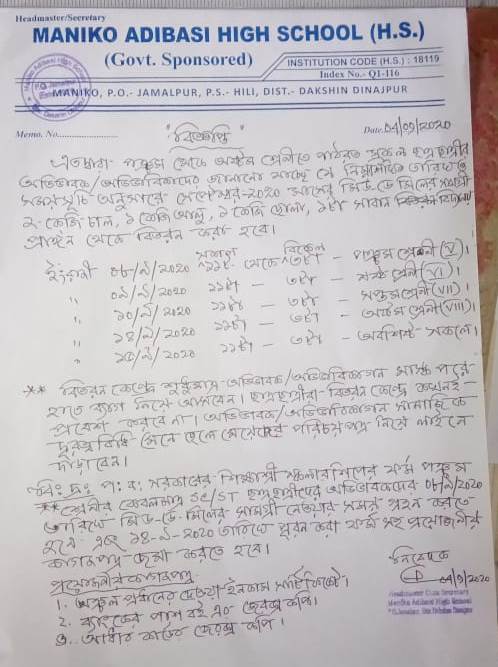 Headmaster/Secretary
MANIKO ADIBASI HIGH SCHOOL (H.S.)
(Govt. Sponsored)
INSTITUTION CODE (H.S.) : 18119
Index No.- Q1-116
MANIKO, P.O.- JAMALPUR, P.S.- HILI, DIST.- DAKSHIN DINAJPUR
Memo. No.
Date 04/09/2020
"বিজ্ঞপ্তি"
এতদ্বারা- পঞ্চম থেকে অষ্টম শ্রেণীতে পাঠরত সকল ছাত্রছাত্রীর
অভিভাবক/অভিভাবিকাদের জানানো যাচ্ছে যে নিম্নলিখিত তারিখ ও
সময়সূচি অনুসারে সেপ্টেম্বর-2020 মাসের মিড-ডে মিলের সামগ্রী
২ কেজি চাল, ১ কেজি আলু, ১ কেজি ছোলা, ১টা সাবান বিদ্যালয়
থেকে বিতরন করা হবে।
সকাল বিকেল
ইংরাজী ০৮/৯/২০২০ ১১টা- থেকে ৩টা - পঞ্চম শ্রেনী (V)।
" ০৯/৯/২০২০ ১১টা - ৩টা - ষষ্ঠ শ্রেনী (VI)।
" ১০/৯/২০২০ ১১টা - ৩টা - সপ্তম শ্রেনী (VII)।
" ১৪/৯/২০২০ ১১টা - ৩টা - অষ্টম শ্রেনী (VIII)।
" ১৫/৯/২০২০ ১১টা - ৩টা - অবশিষ্ট সকলে।
** বিতরন কেন্দ্রে শুধুমাত্র অভিভাবক/অভিভাবিকাগন মাস্ক পরে
হাতে ব্যাগ নিয়ে আসবেন। ছাত্রছাত্রীরা বিতরন কেন্দ্রে কখনই
প্রবেশ করবে না। অভিভাবক/অভিভাবিকাগন সামাজিক
দূরত্ব বিধি মেনে ছেলে মেয়েদের পরিচয় পত্র নিয়ে লাইনে
দাঁড়াবেন।
বিঃ দ্রঃ পঃ বঃ সরকারের শিক্ষাশ্রী স্কলারশিপের ফর্ম পঞ্চম
** শ্রেনীর কেবলমাত্র SC/ST ছাত্রছাত্রীদের অভিভাবকদের ০৮/৯/2020
তারিখে মিড-ডে-মিলের সামগ্রী নেওয়ার সময় গ্রহন করতে
হবে এবং ১৪-৯-2020 তারিখে পূরন করা ফর্ম সহ প্রয়োজনীয়
কাগজপত্র জমা করতে হবে।
প্রয়োজনীয় কাগজপত্র
1. অঞ্চল প্রধানের দেওয়া ইনকাম সার্টিফিকেট।
2. ব্যাংকের পাশ বই এর জেরক্স কপি।
৩. আধার কার্ডের জেরক্স কপি।
নিবেদক
04/9/2020
Maniko Adibasi High School